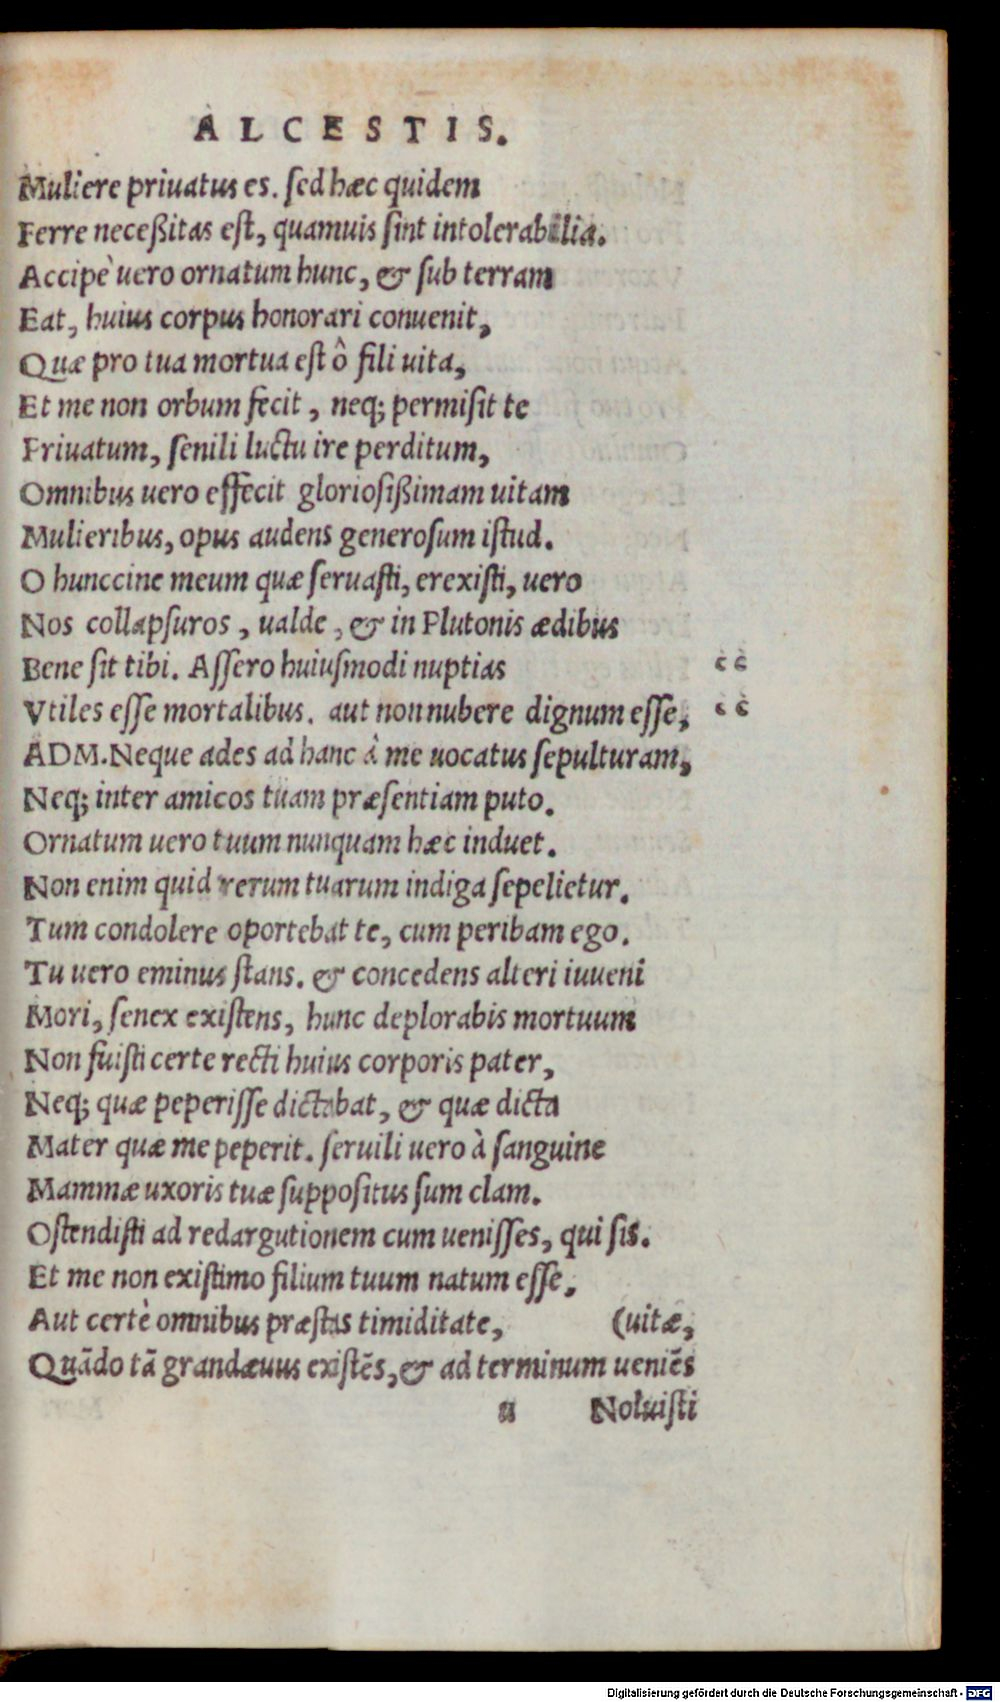 ALCESTIS.
Muliere priuatus es. ſed hæc quidem
Ferre neceßitas eſt, quamuis ſint intolerabilia.
Accipè uero ornatum hunc, & ſub terram
Eat, huius corpus honorari conuenit,
Quæ pro tua mortua eſt ô fili uita,
Et me non orbum fecit, neq; permiſit te
Priuatum, ſenili luctu ire perditum,
Omnibus uero effecit glorioſißimam uitam
Mulieribus, opus audens generoſum iſtud.
O hunccine meum quæ ſeruaſti, erexiſti, uero
Nos collapſuros, ualde, & in Plutonis ædibus
Bene ſit tibi. Aſſero huiuſmodi nuptias
Vtiles eſſe mortalibus. aut non nubere dignum eſſe,
ADM. Neque ades ad hanc à me uocatus ſepulturam,
Neq; inter amicos tuam præſentiam puto.
Ornatum uero tuum nunquam hæc induet.
Non enim quid rerum tuarum indiga ſepelietur.
Tum condolere oportebat te, cum peribam ego.
Tu uero eminus ſtans. & concedens alteri iuueni
Mori, ſenex exiſtens, hunc deplorabis mortuum
Non fuiſti certe recti huius corporis pater,
Neq; quæ peperiſſe dictabat, & quæ dicta
Mater quæ me peperit. ſeruili uero à ſanguine
Mammæ uxoris tuæ ſuppoſitus ſum clam.
Oſtendiſti ad redargutionem cum ueniſſes, qui ſis.
Et me non exiſtimo filium tuum natum eſſe.
Aut certè omnibus præſtas timiditate, (uitæ,
Quãdo tã grandæuus exiſtẽs, & ad terminum ueniẽs
u Noluiſti
Digitalisierung gefördert durch die Deutsche Forschungsgemeinschaft - DFG